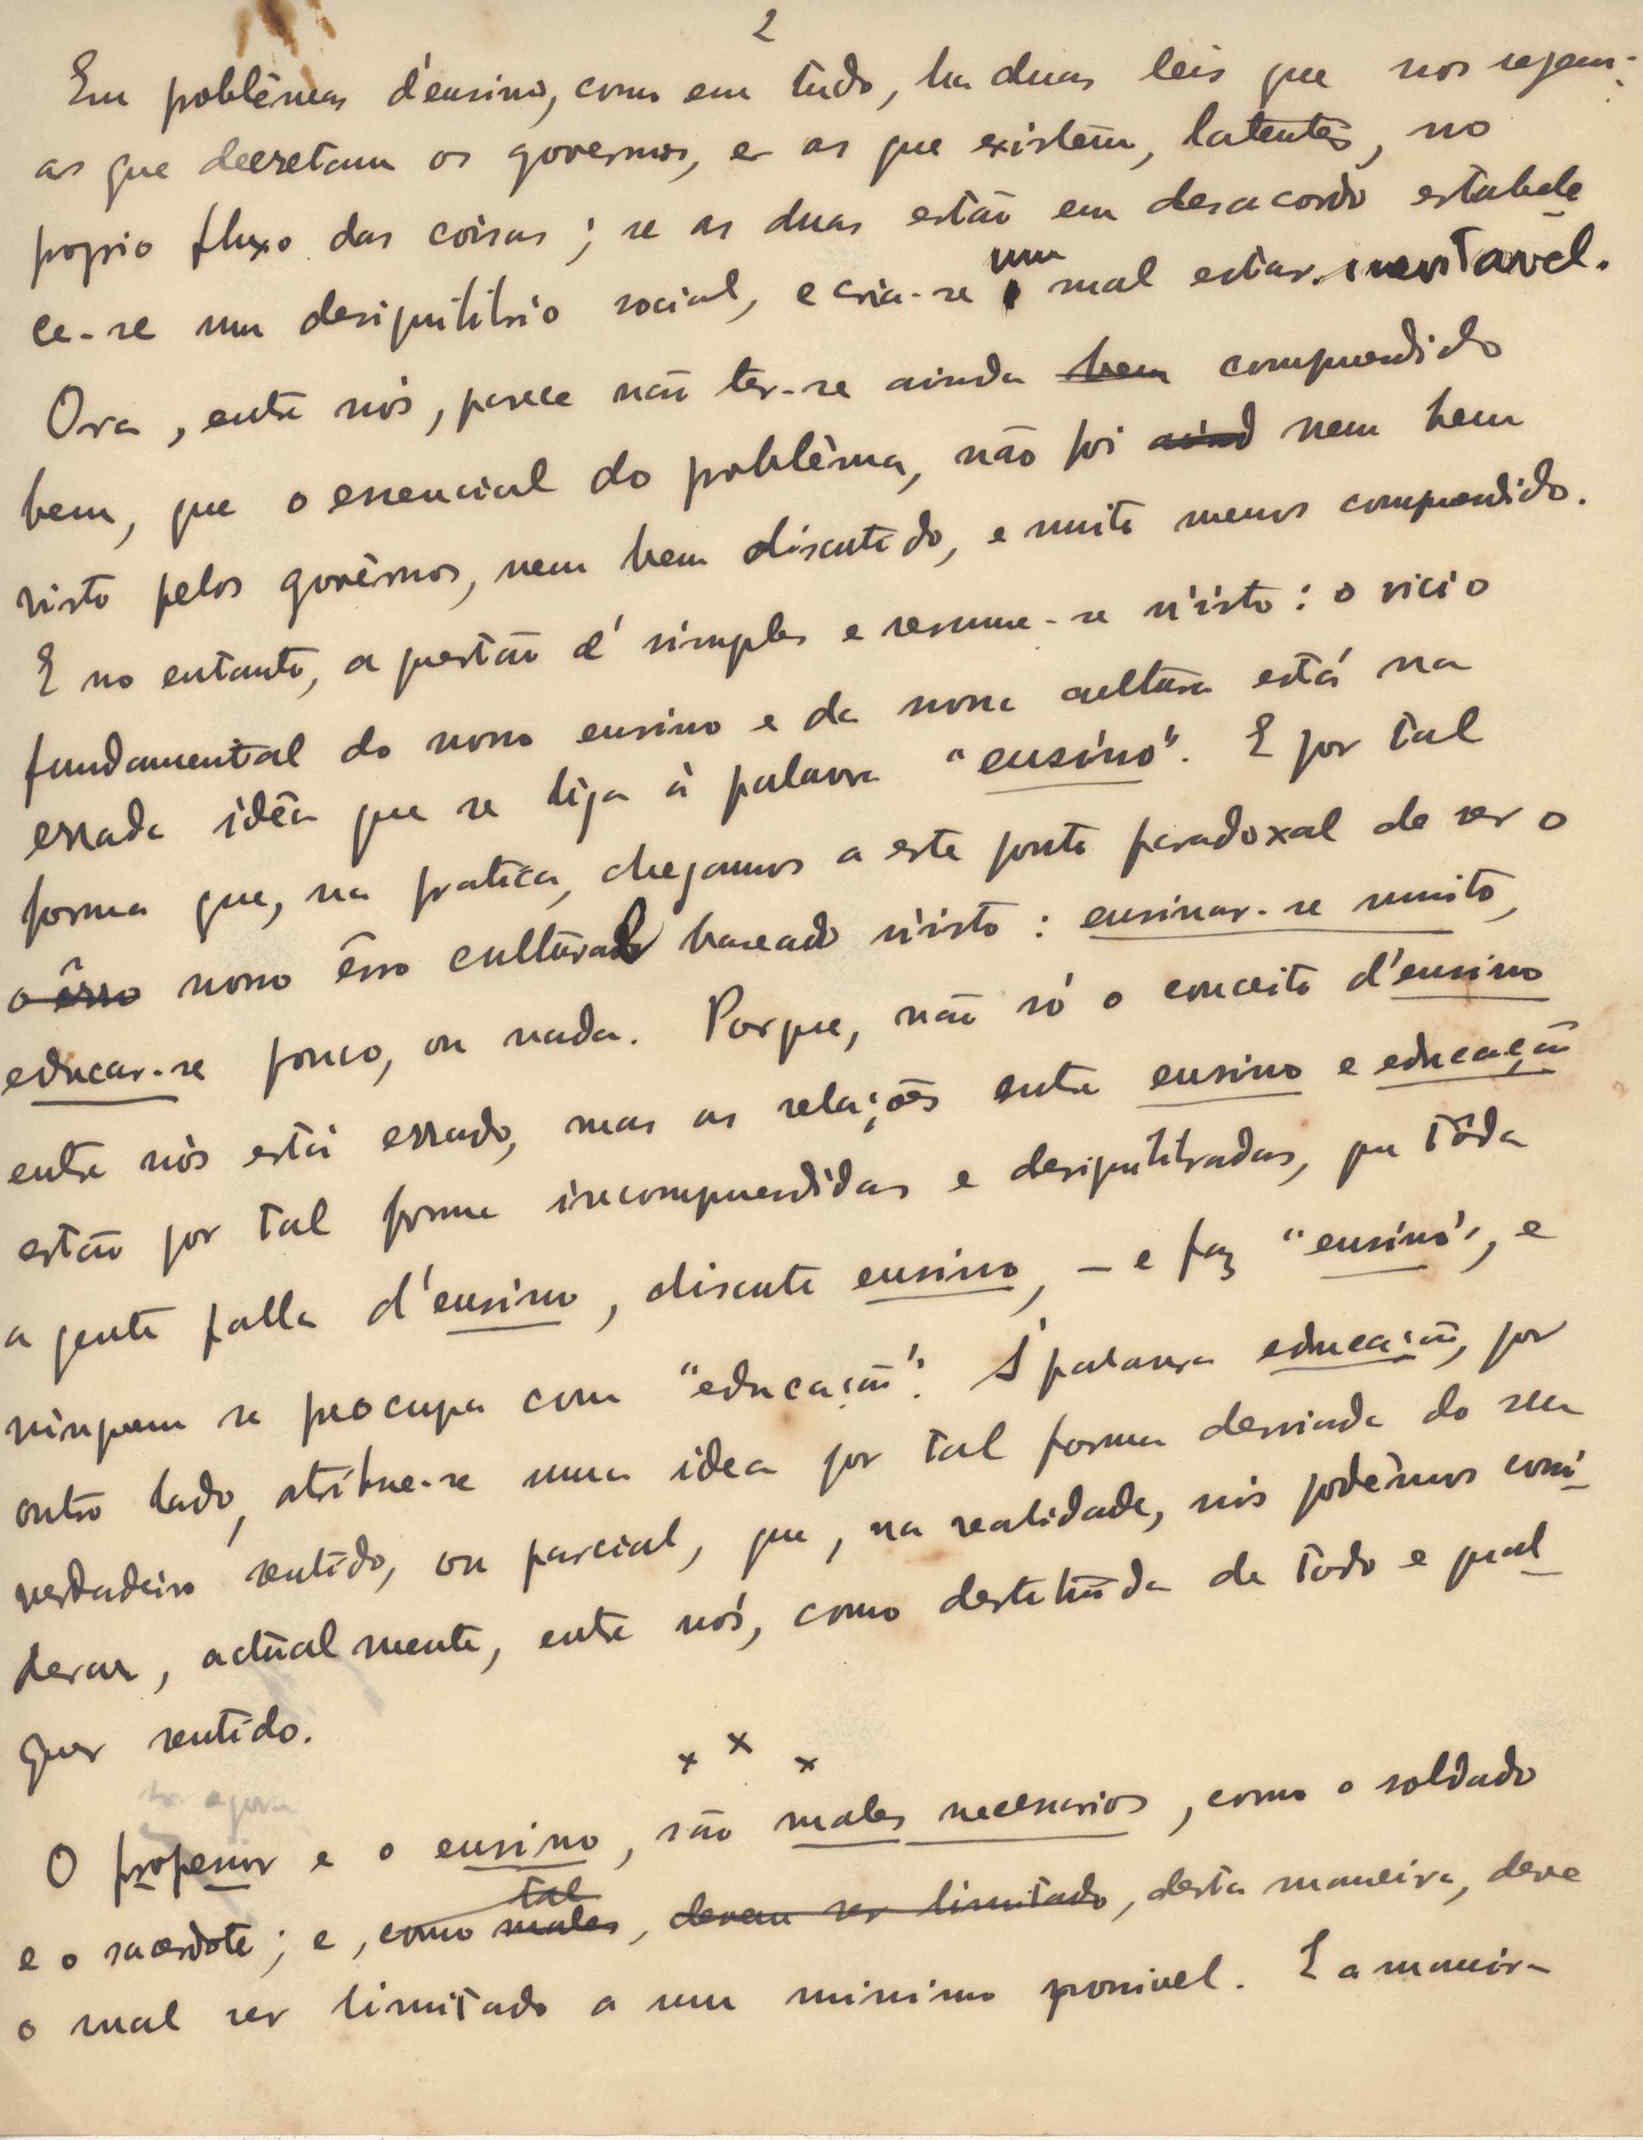 2
Em problêmas d'ensino, como em tudo, ha duas leis que nos regem:
as que decretam os governos, e as que existem, latentes, no
proprio fluxo das coisas; se as duas estão em desacordo estabele
ce-se um desiquilibrio social, e cria-se um mal estar inevitavel.
Ora, entre nós, parece não ter-se ainda bem comprendido
bem, que o essencial do problêma, não foi aind nem bem
visto pelos govêrnos, nem bem discutido, e muito menos comprendido.
E no entanto, a questão é simples e resume-se n'isto: o vicio
fundamental do nosso ensino e da nossa cultura está na
errada idêa que se liga á palavra "ensino". E por tal
forma que, na pratica, chegamos a este ponto paradoxal de ser o
o êrro nosso êrro cultural baseado n'isto: ensinar-se muito,
educar-se pouco, ou nada. Porque, não só o conceito d'ensino
entre nós está errado, mas as relações entre ensino e educação
estão por tal forma incomprendidas e desiquilibradas, que tôda
a gente falla d'ensino, discute ensino, - e faz "ensino", e
ninguem se preocupa com "educação". Á palavra educação, por
outro lado, atribue-se uma idea por tal forma desviada do seu
verdadeiro sentido, ou parcial, que, na realidade, nós podêmos consi-
derar, actualmente, entre nós, como destituida de todo e qual-
quer sentido.
x x x
agora
O professor e o ensino, são males necessarios, como o soldado
tal
e o sacerdote; e, como males, devem ser limitado, desta maneira, deve
o mal ser limitado a um minimo possivel. E a maneira